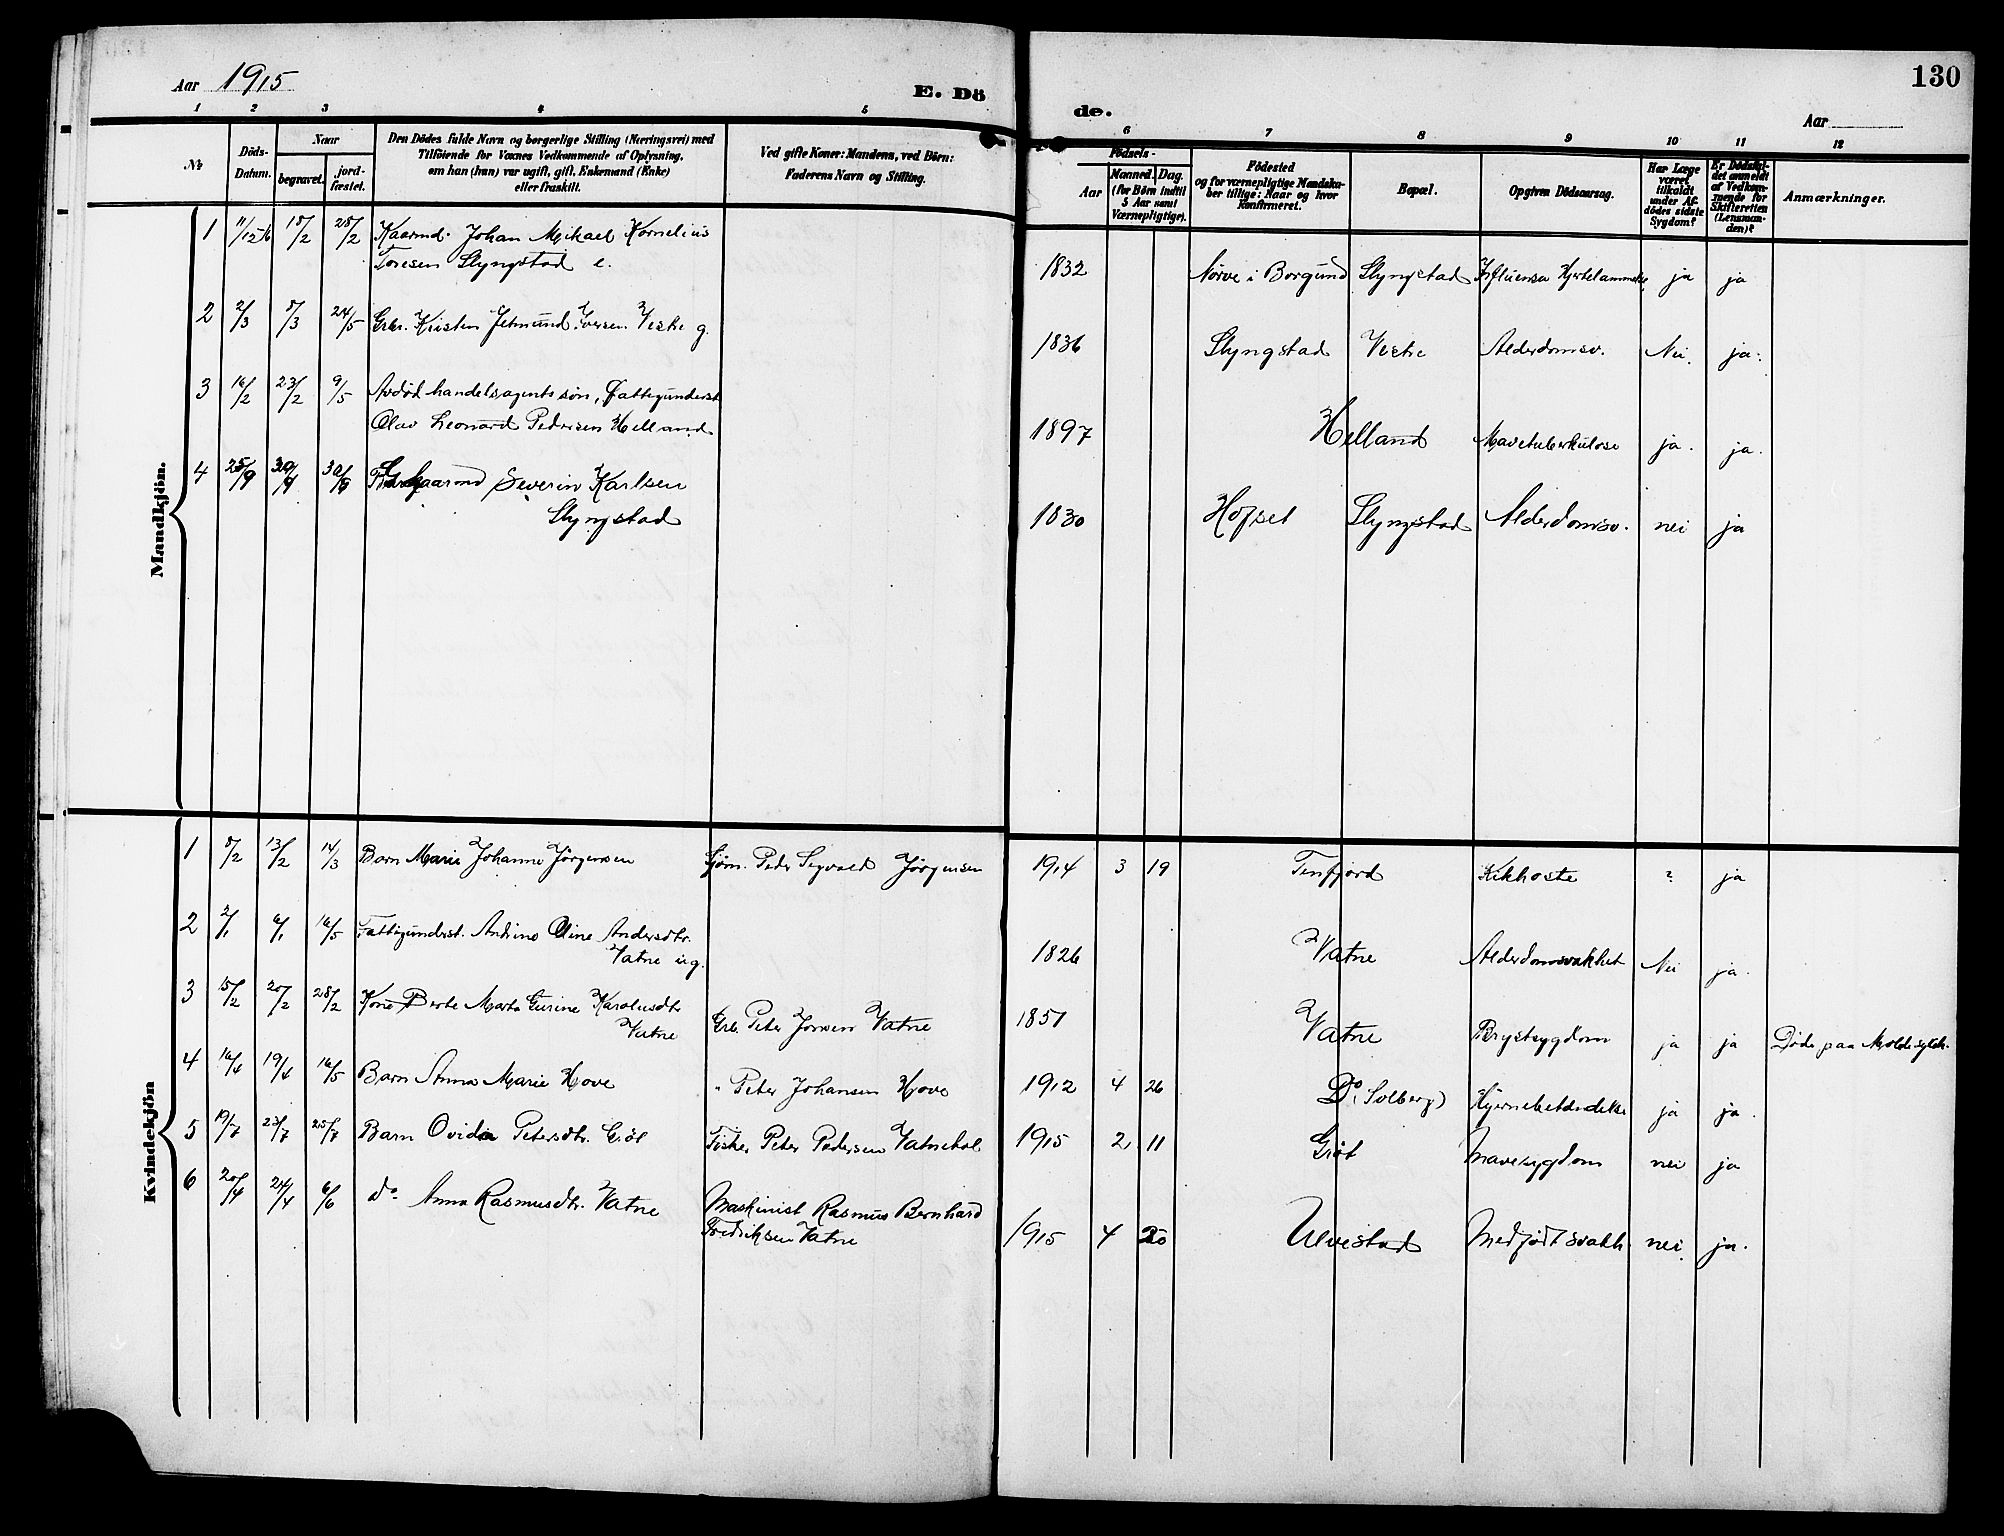 Aar 1915
E. Dö
de.
Aar
130
1 2 3 4 5 6 7 8 9 10 11 12
№
Döds-
Datum.
Naar
begravet.
jord-
fæstet.
Den Dödes fulde Navn og borgerlige Stilling (Næringsvei) med
Tilföiende for Voxnes Vedkommende af Oplysning,
om han (hun) var ugift, gift, Enkemand (Enke)
eller fraskilt.
Ved gifte Koner: Mandens, ved Börn:
Faderens Navn og Stilling.
Födsels-
Aar
Maaned. Dag.
(for Börn indtil
5 Aar samt
Værnepligtige).
Födested
og for værnepligtige Mandska-
ber tillige: Naar og hvor
konfirmeret.
Bopæl.
Opgiven Dödsaarsag.
Har Læge
været
tilkaldt
under Af-
dödes sidste
Sygdom?
Er Dödsfal-
det anmeldt
af Vedkom-
mende for
Skifteretten
(Lensman-
den)?
Anmærkninger.
Mandkjön.
1 18/2 28/2 Kaarmd. Johan Mikael Kornelius
Toresen Slyngstad e.
1832 Nörve i Borgund Slyngstad Influensa Hjertelammelse ja ja
2 2/3 8/3 24/5 Grbr. Kristen Jetmund Iversen Vestre g.
1836 Slyngstad Vestre Alderdomsv. Nei. ja.
3 16/2 23/2 9/5 Avdöd handelsagents sön, Fattigunderst
Olav Leonard Pedersen Helland
1897 Helland Mavetuberkulose ja. ja.
4 25/9 30/9 Kaarmd Severin Karlsen
Slyngstad
1830 Hofset Slyngstad Alderdomsv. nei ja
Kvindekjön
1 8/2 13/2 14/3 Barn Marie Johanne Jörgensen Sjöm. Peder Sigvald Jörgensen 1914 3 19 Tenfjord Kikhoste ? ja
2 2/1 6/1 16/5 Fattigunderst. Andrine Oline Andersdtr.
Vatne ug.
1826 Vatne Alderdomsvakhet Nei ja.
3 15/2 20/2 28/2 Kone Berte Marta Gurine Karolusdtr
Vatne
Grb. Peter Jonsen Vatne 1851 Vatne Brystsygdom ja ja Döde paa Molde sykeh.
4 16/4 19/4 16/5 Barn Anna Marie Hove " Peter Johansen Hove 1912 4 26 Do. Solberg) Hjernebetændelse ja ja.
5 19/7 23/7 25/7 Barn Ovidia Petersdtr. Gröt Fisker Peter Pedersen Vatnehol 1915 2 11 Gröt Mavesygdom nei ja
6 20/4 24/4 6/6 do. Anna Rasmusdtr. Vatne Maskinist Rasmus Bernhard
Fredriksen Vatne
1915 4 20 Ulvestad Medfödt svakh. nei. ja.